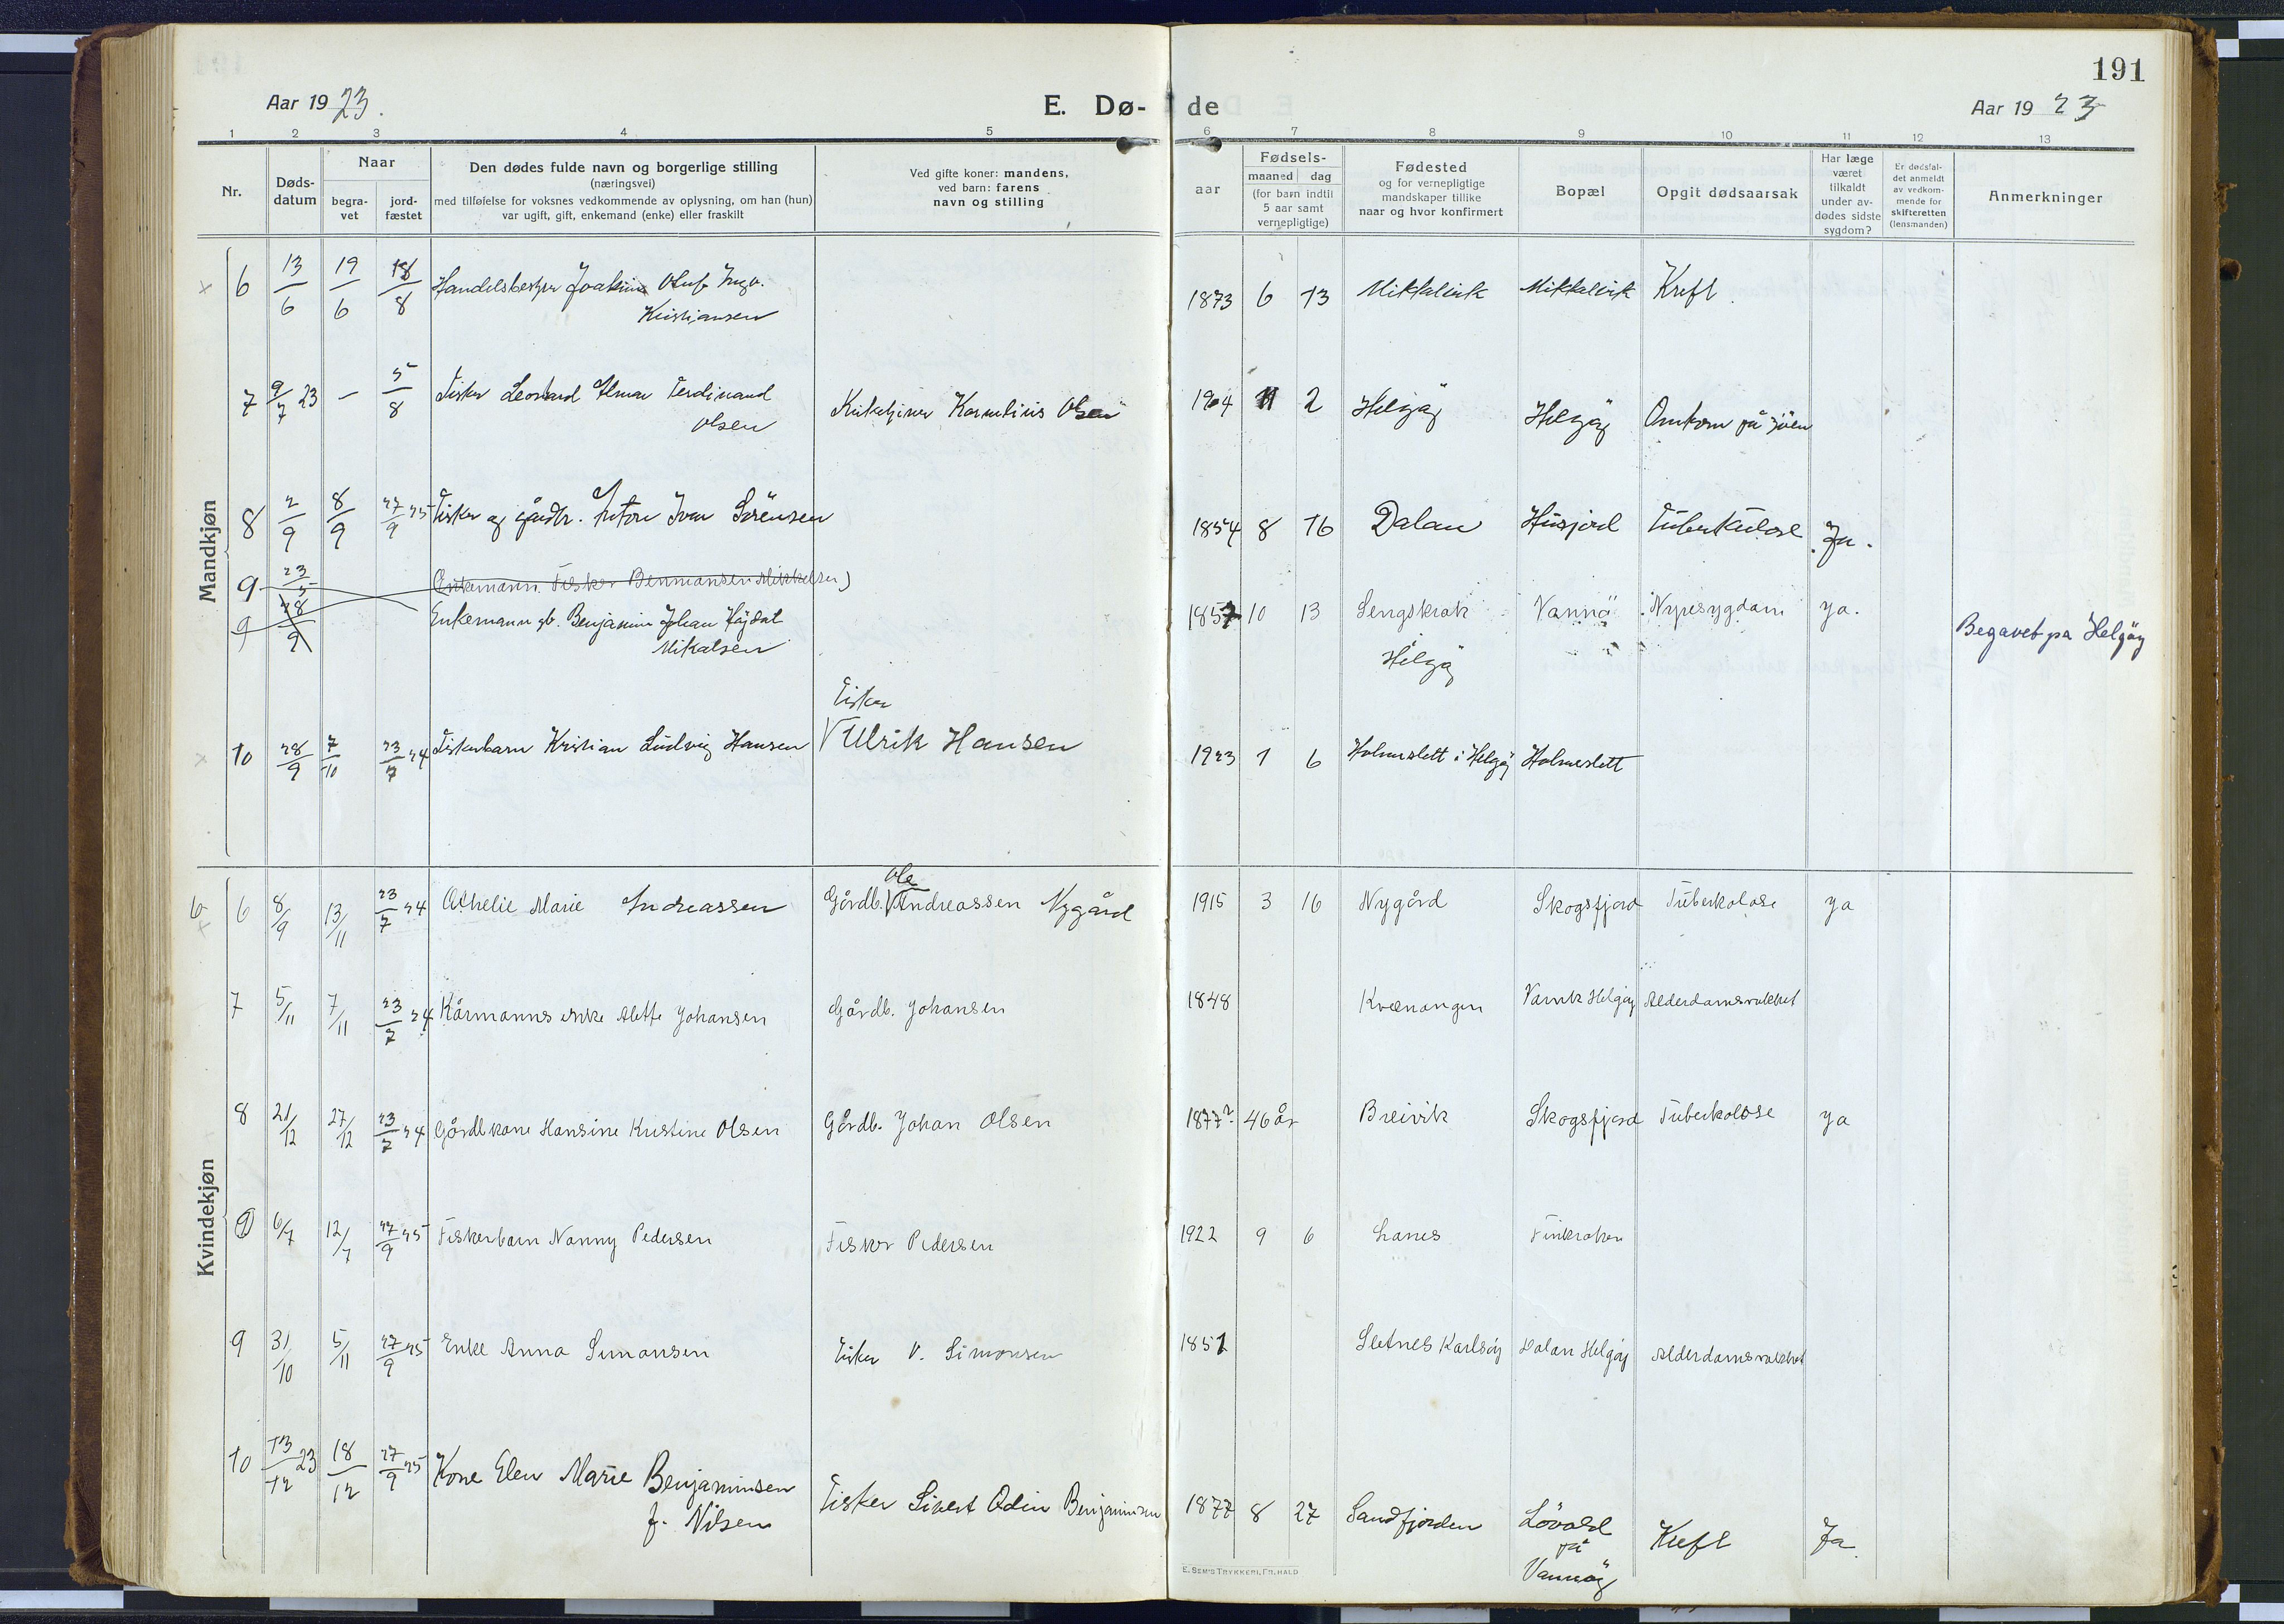 191
Aar 1923.
E. Dø- de
Aar 1923
1 2 3 4 5 6 7 8 9 10 11 12 13
Nr.
Døds-
datum
Naar
begra-
vet
jord-
fæstet
Den dødes fulde navn og borgerlige stilling
(næringsvei)
med tilføielse for voksnes vedkommende av oplysning, om han (hun)
var ugift, gift, enkemand (enke) eller fraskilt
Ved gifte koner: mandens,
ved barn: farens
navn og stilling
Fødsels-
aar
maaned dag
(for barn indtil
5 aar samt
vernepligtige)
Fødested
og for vernepligtige
mandskaper tillike
naar og hvor konfirmert
Bopæl
Opgit dødsaarsak
Har læge
været
tilkaldt
under av-
dødes sidste
sygdom?
Er dødsfal-
det anmeldt
av vedkom-
mende for
skifteretten
(lensmanden)
Anmerkninger
Mandkjøn
6 13/6 19/6 18/8 Joakim Oluf Ingv. 1873 6 13 Mikkelvik Mikkelvik Kreft.
Kristiansen
7 9/7 23 - 5/8 Fisker Leonhard Elmar Ferdinand 1904 11 2 Helgöy Helgöy Omkom på sjöen
Olsen Kirketjener Kornelius Olsen
8 2/9 8/9 27/9 25 Fisker og gårdbr. Anton Ivar Sörensen 1854 8 16 Dalan Husjord Tuberkulose Ja.
9 23/5 Enkemann. Fisker Benmansen Mikkelsen)
9 28/9 Enkemann gb. Benjamin Johan Højdal 1857 10 13 Lengskrok Vannö Nyresygdom ya.
Mikalsen Helgöy Begavet pa Helgöy
Fisker
10 28/9 7/10 23/7 24 Fiskerbarn Kristian Ludvig Hansen V Ulrik Hansen 1923 1 6 Holmeslett i Helgöy Holmeslett
Kvindekjøn
Ole
6 6 8/9 13/11 23/7 24 Othelie Marie Andreassen Gårdb. V Andreassen Nygård 1915 3 16 Nygård Skogsfjord Tuberkolose ya
7 5/11 7/11 23/7 24 Kårmanns enke Alette Johansen Gårdb. Johansen 1848 Kvænangen Vannk Helgøy Alderdomsvakhet
8 21/12 27/12 23/7 24 Gårdbkone Hansine Kristine Olsen Gårdb. Johan Olsen 1877? 46 år Breivik Skogsfjord Tuberkolose ya
9 6/7 12/7 27/9 25 Fiskerbarn Nanny Pedersen Fisker Pedersen 1922 9 6 Lanes Finkroken
9 31/10 5/11 27/9 25 Enke Anna Simonsen Fisker V. Simonsen 1851 Sletnes Karlsöy Dalan Helgöy Alderdomsvakhet
10 13/12 23 18/12 27/9 25 Kone Elen Marie Benjaminsen
f. Nilsen Fisker Sivert Odin Benjaminsen 1877 8 27 Sandfjorden Lövold Kreft Ja.
på
Vannöy
E. SEM'S TRYKKERI, FR. HALD